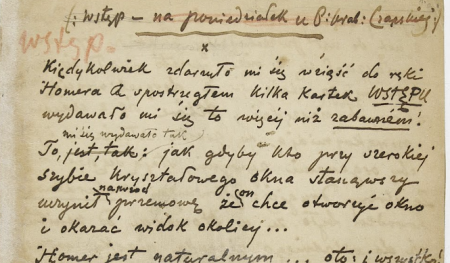 /: wstęp – na poniedziałek u Bibral: Czapskiej :/
Wstęp.
x
Kiedykolwiek zdarzyło mi się wziąść do ręki
Homera a spostrzegłem kilka kartek WSTĘPU
wydawało mi się to więcej niż zabawném!
mi się wydawało tak
To, jest, tak: jak gdyby kto przy szerokiej
szybie kryształowego okna stanąwszy
naprzód on
uczynił przemowę że chce otworzyć okno
i okazać widok okolicy...
Homer jest naturalnym ... oto: i wszystko!